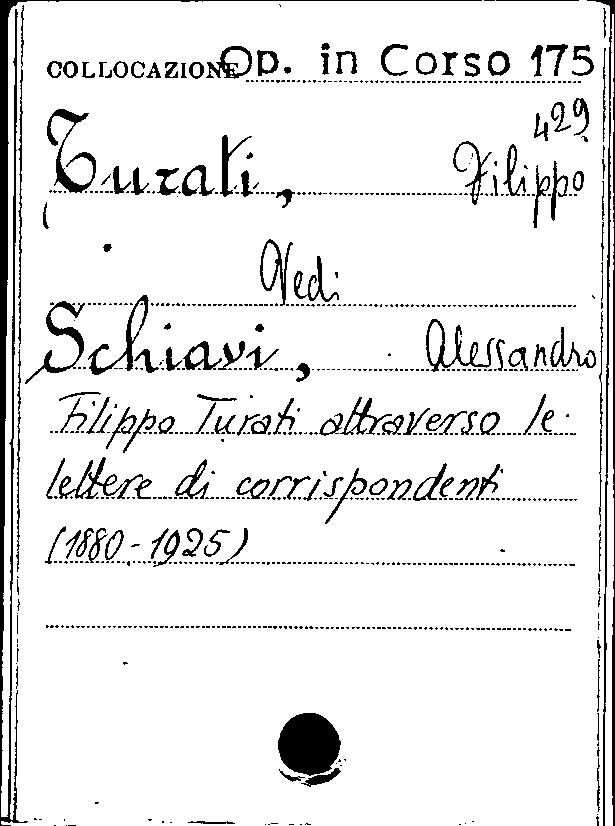 COLLOCAZIONE Op. in Corso 175
429
Turati, Filippo
Vedi
Schiavi, Alessandro
Filippo Turati attraverso le
lettere di corrispondenti
(1880-1925)